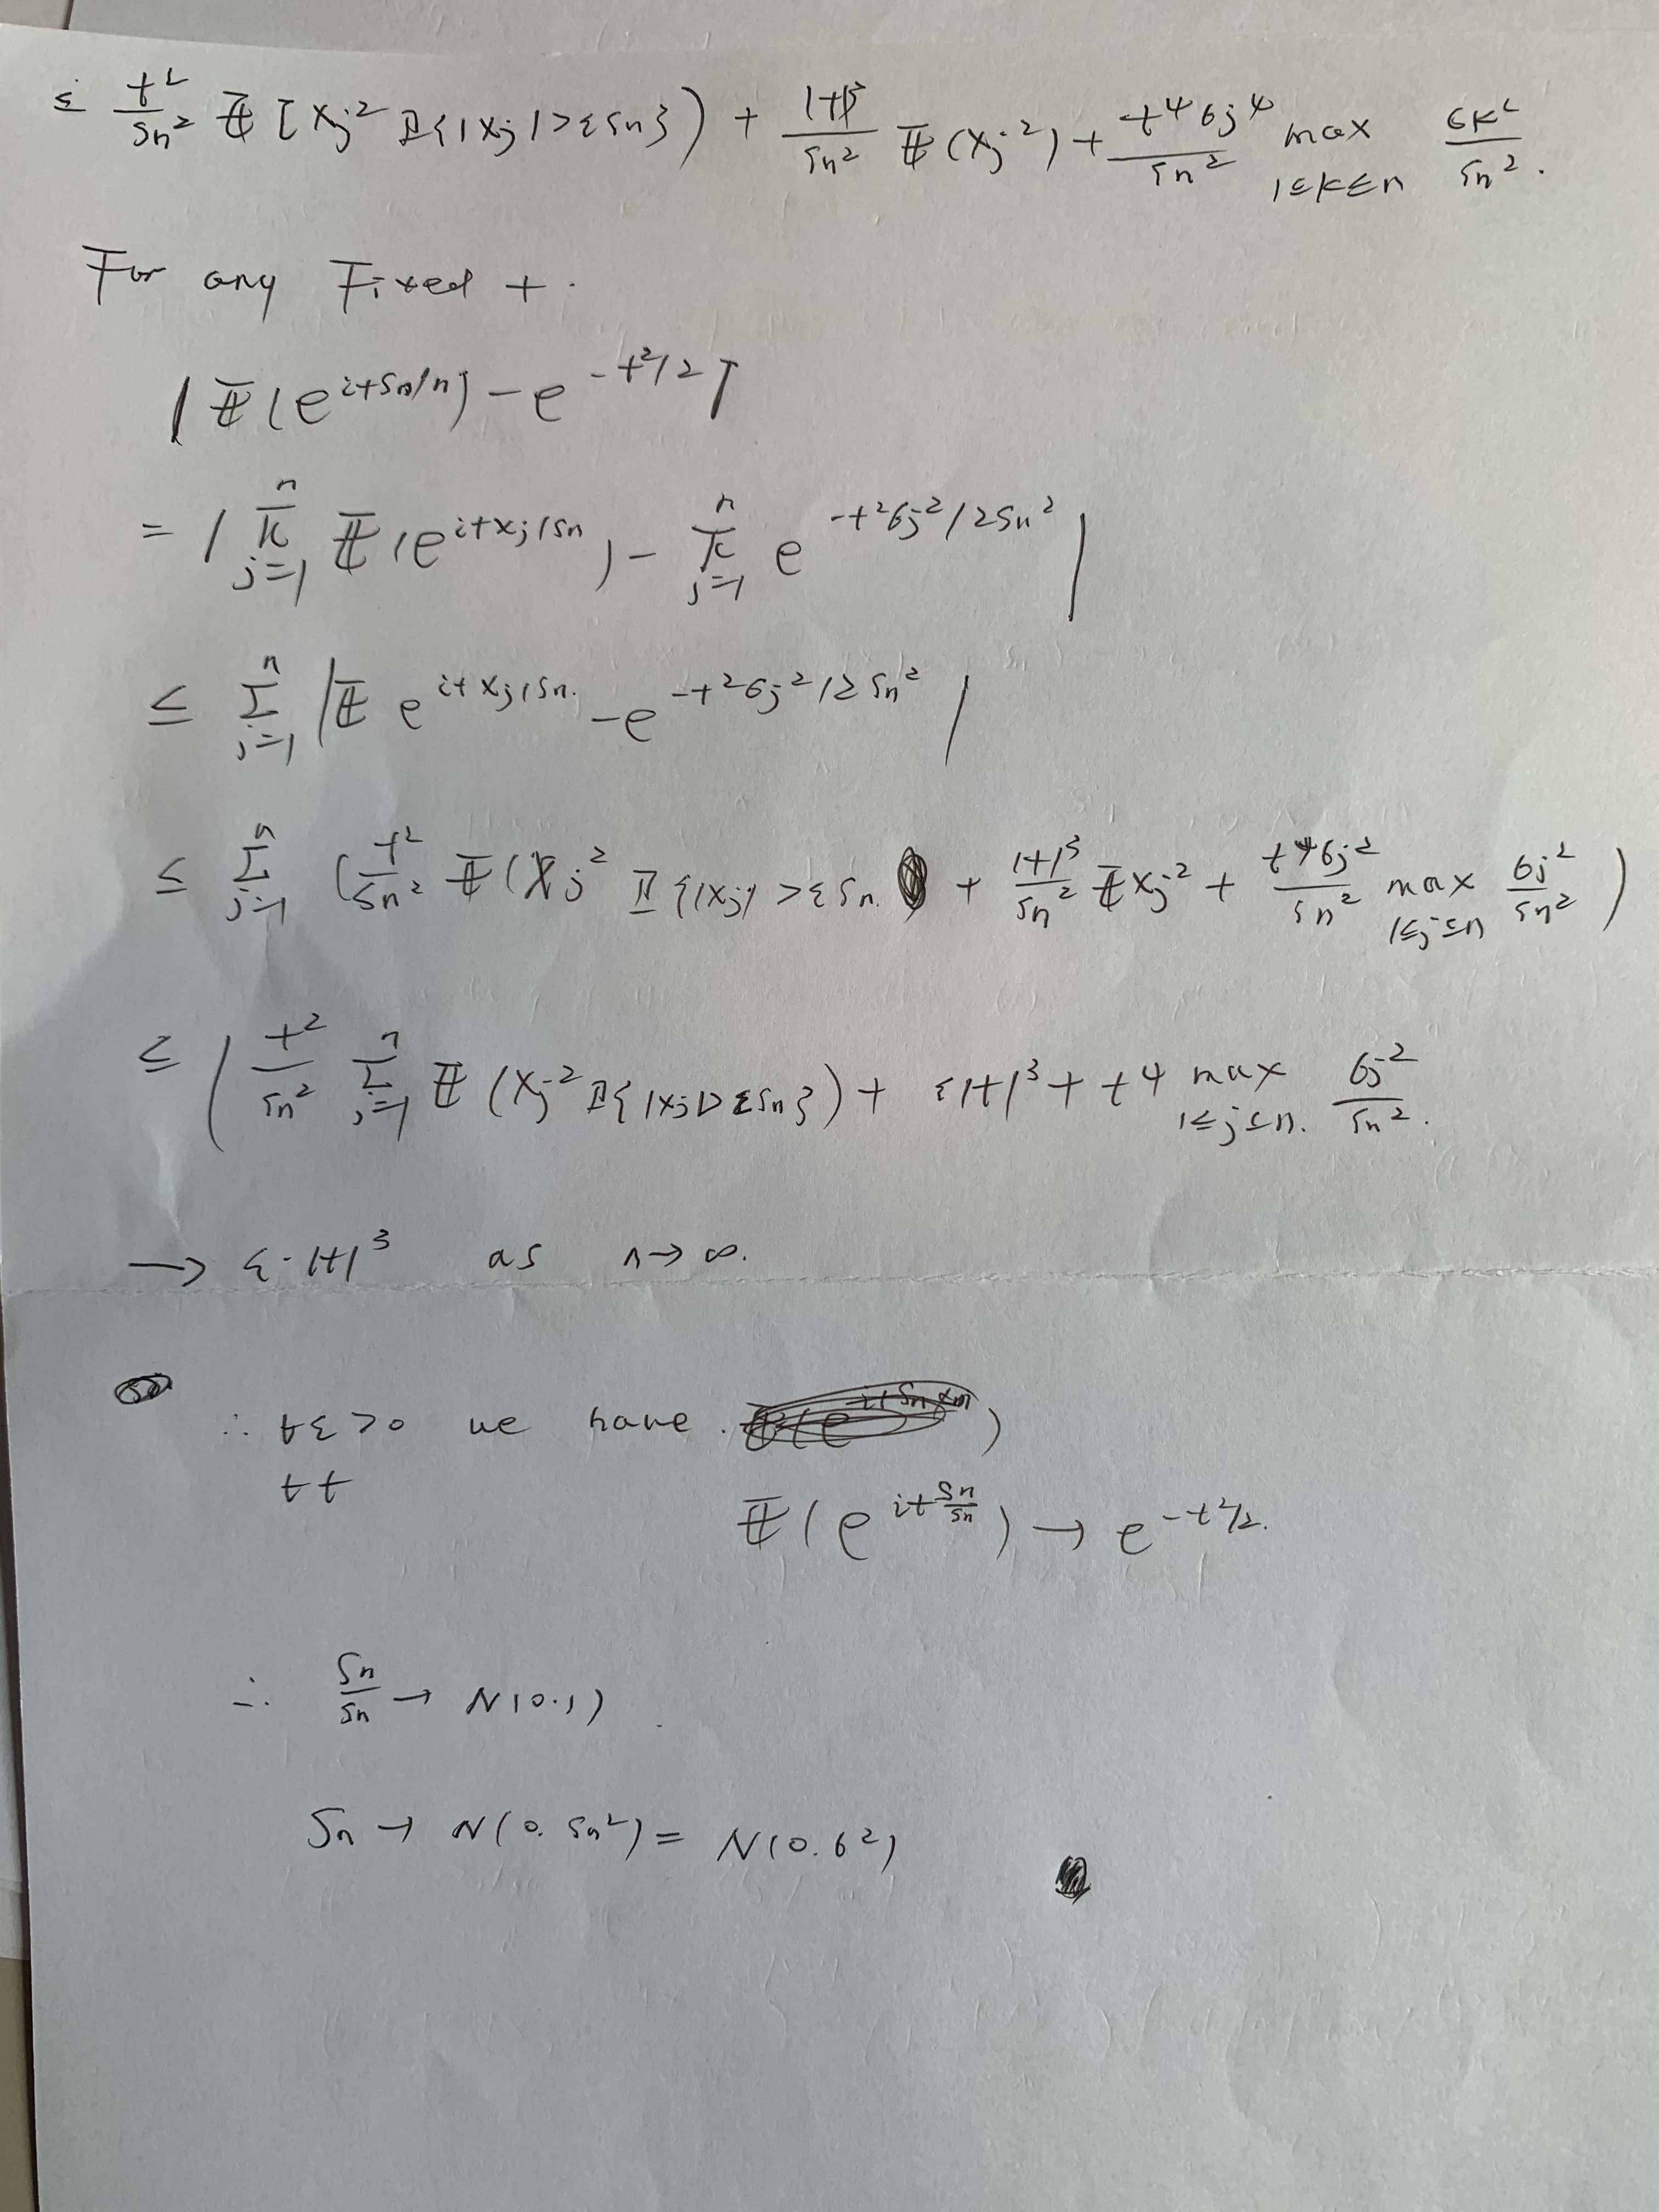 ≤ t²/sn² 𝔼[Xj² 𝟙{|Xj|>εsn}) + |t|³/sn² 𝔼(Xj²) + t⁴σj⁴/sn² max 1≤k≤n σk²/sn².
For any Fixed t.
|𝔼(e^{itSn/n}) - e^{-t²/2}|
= |∏_{j=1}^n 𝔼(e^{itXj/sn}) - ∏_{j=1}^n e^{-t²σj²/2sn²}|
≤ Σ_{j=1}^n |𝔼 e^{itXj/sn} - e^{-t²σj²/2sn²}|
≤ Σ_{j=1}^n (t²/sn² 𝔼(Xj² 𝟙{|Xj|>εsn + |t|³/sn² 𝔼Xj² + t⁴σj²/sn² max 1≤j≤n σj²/sn²)
≤ (t²/sn² Σ_{j=1}^n 𝔼(Xj² 𝟙{|Xj|>εsn}) + ε|t|³ + t⁴ max 1≤j≤n. σj²/sn².
→ ε·|t|³ as n→∞.
∴ ∀ε>0 we have. )
∀t
𝔼(e^{it Sn/sn}) → e^{-t²/2}.
∴ Sn/sn → N(0.1)
Sn → N(0. sn²) = N(0.σ²)